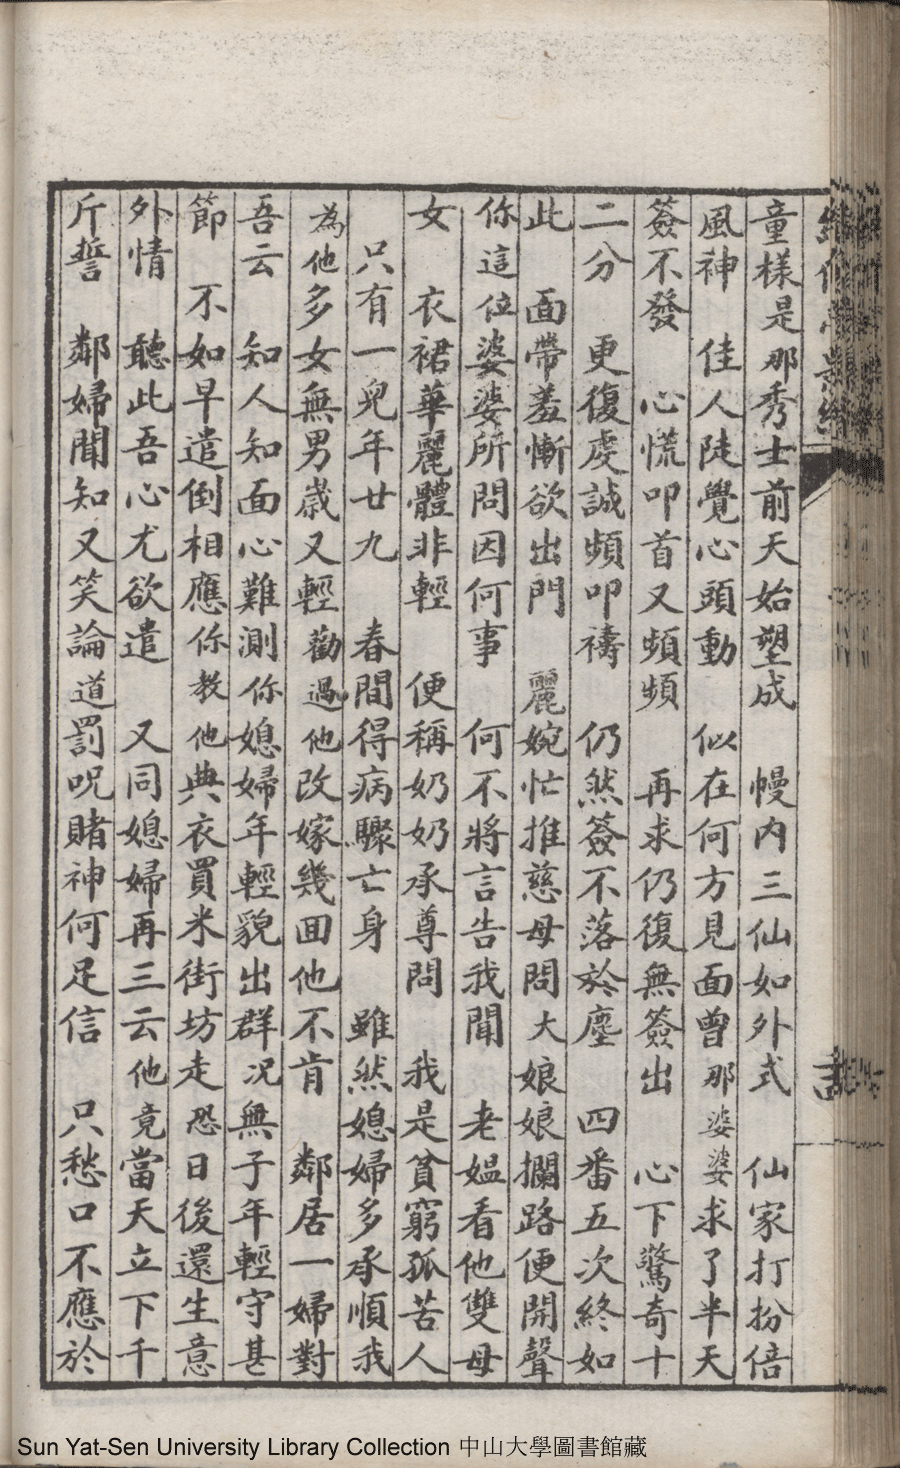 童樣是那秀士前天始塑成　幔内三仙如外式　仙家打扮倍
風神　佳人陡覺心頭動　似在何方見面曾那婆婆求了半天
簽不發　心慌叩首又頻頻　再求仍復無簽出　心下驚奇十
二分　更復虔誠頻叩禱　仍然簽不落於塵　四番五次終如
此　面帶羞慚欲出門　麗婉忙推慈母問大娘娘攔路便開聲
你這位婆婆所問因何事　何不將言告我聞　老媪看他雙母
女　衣裙華麗體非輕　便稱奶奶承尊問　我是貧窮孤苦人
只有一兒年廿九　春間得病驟亡身　雖然媳婦多承順我
為他多女無男歲又輕勸過他改嫁幾囬他不肯　鄰居一婦對
吾云　知人知面心難測你媳婦年輕貌出群况無子年輕守甚
節　不如早遣倒相應你教他典衣買米街坊走恐日後還生意
外情　聽此吾心尤欲遣　又同媳婦再三云他竟當天立下千
斤誓　鄰婦聞知又笑論道罰呪賭神何足信　只愁口不應於
Sun Yat-Sen University Library Collection 中山大學圖書館藏